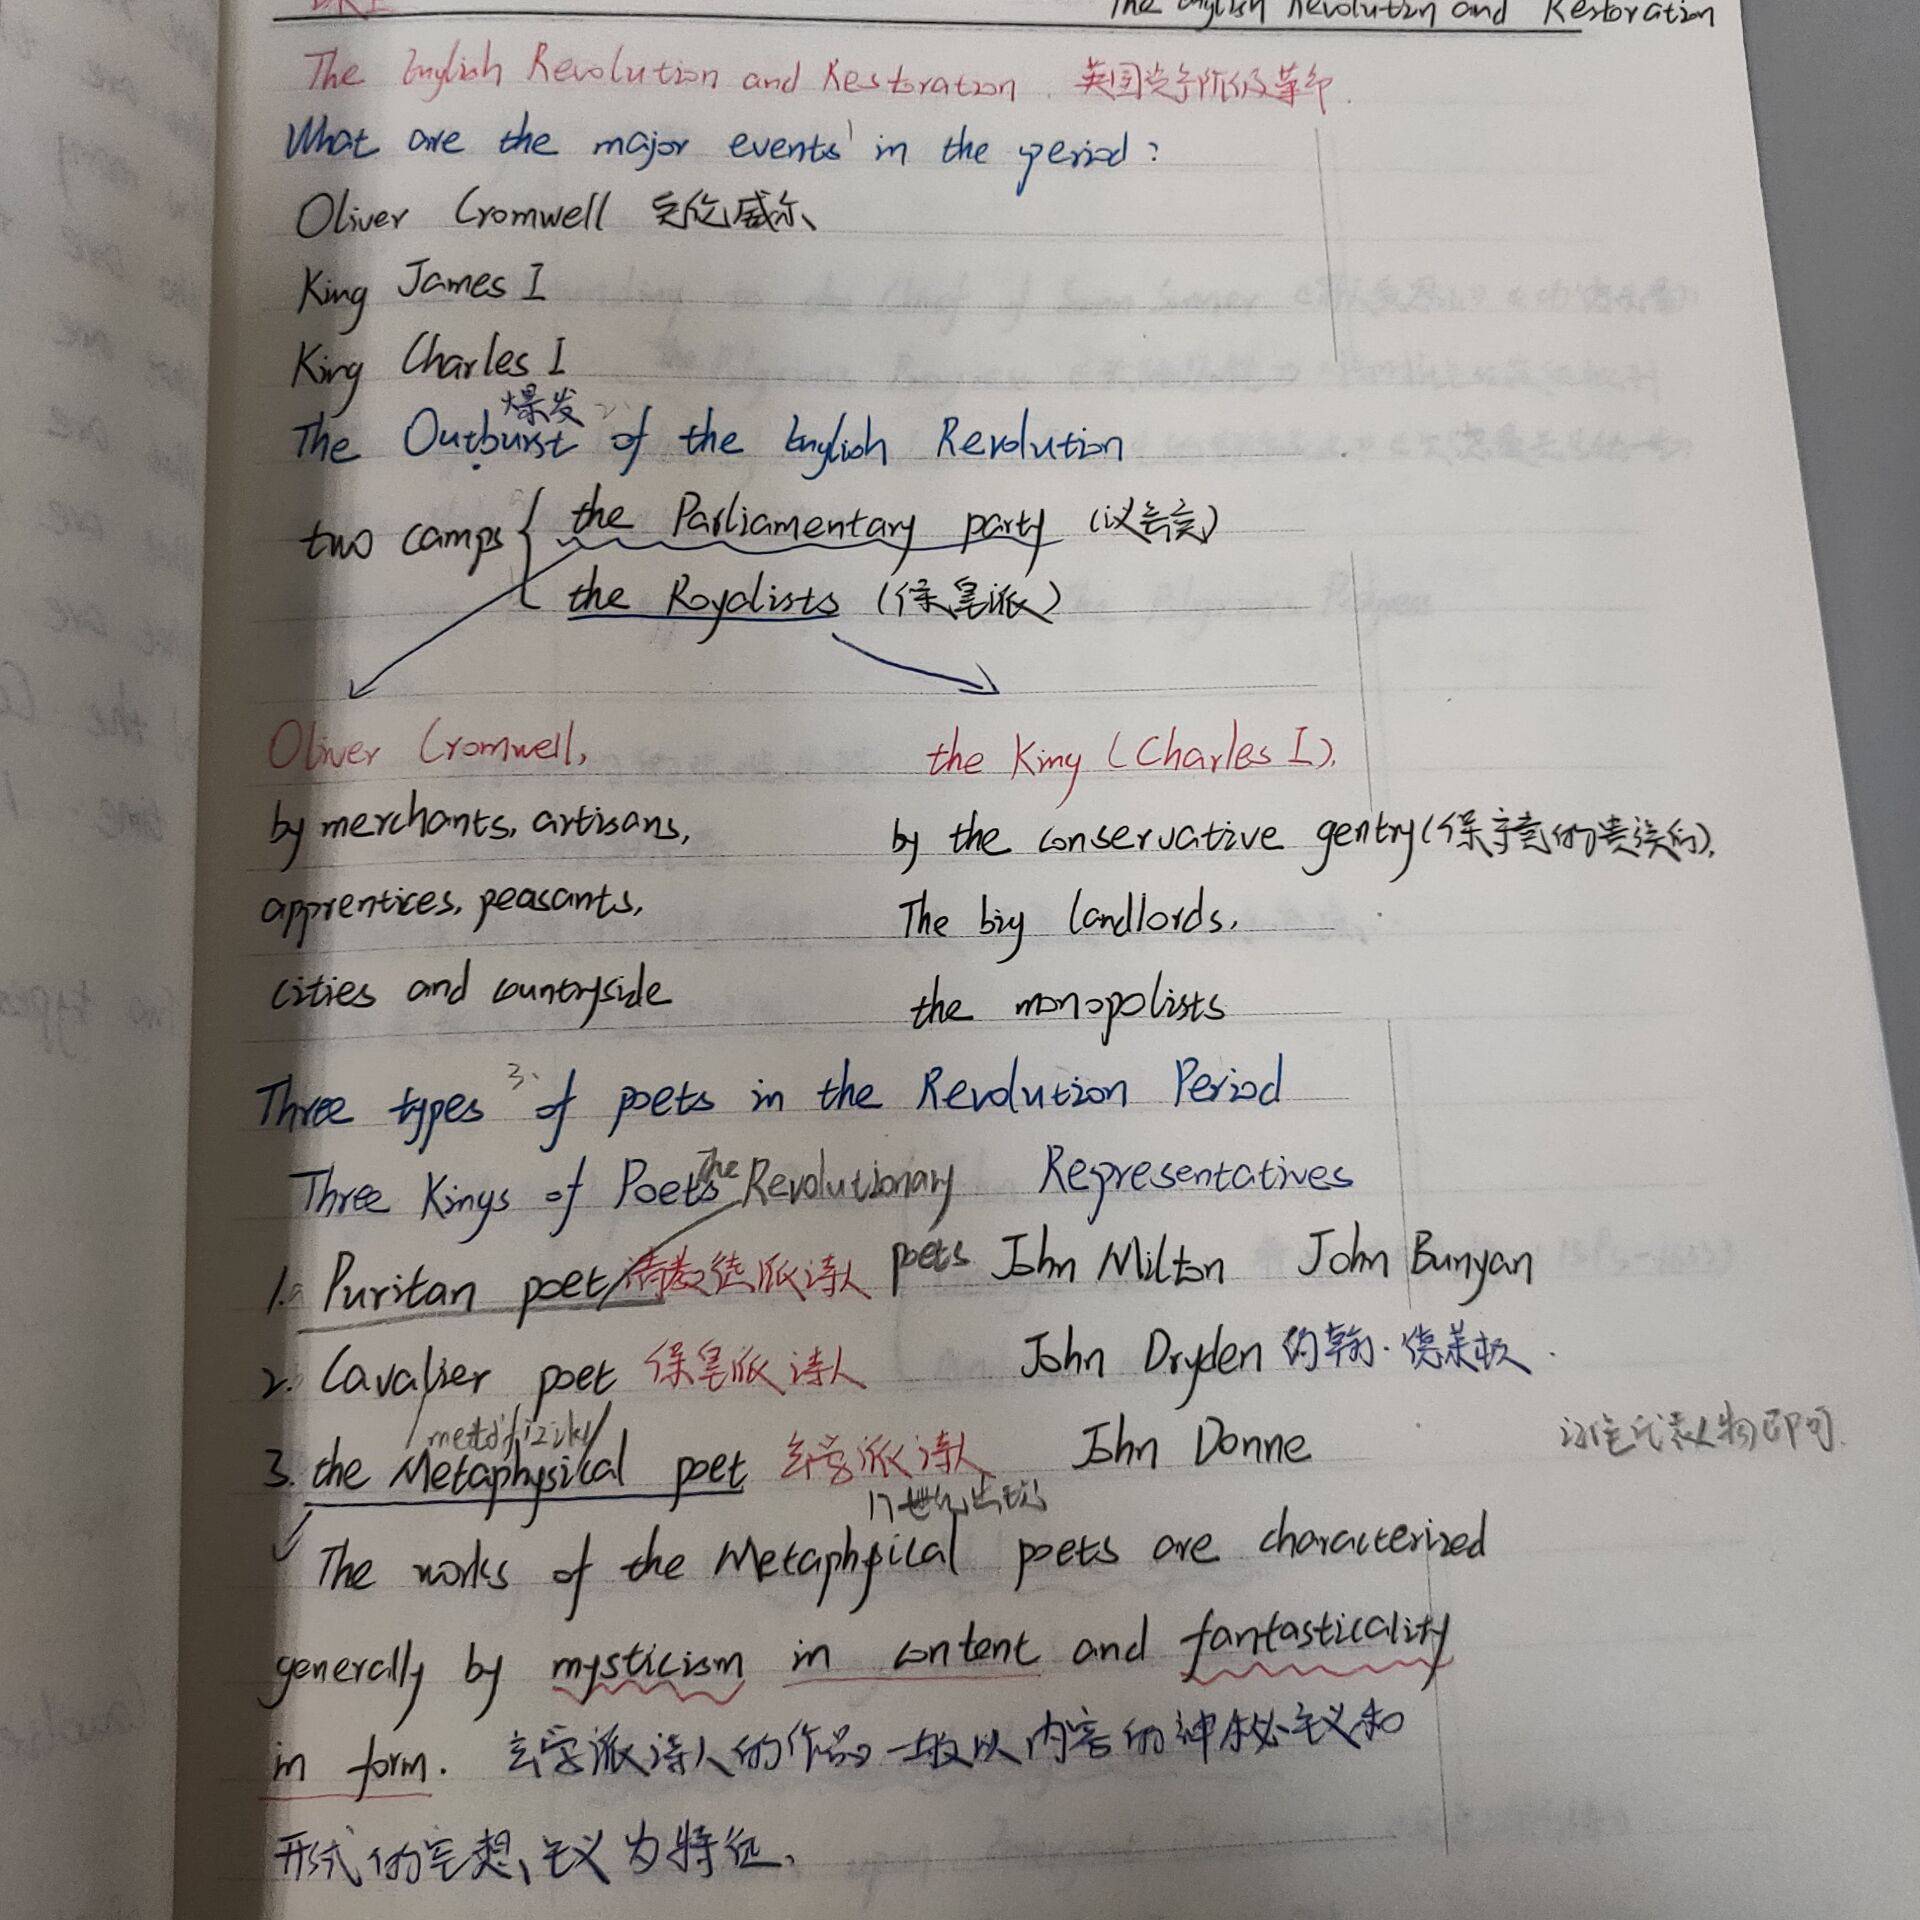 The English Revolution and Restoration
The English Revolution and Restoration. 英国资产阶级革命.
What are the major events in the period?
Oliver Cromwell 克伦威尔、
King James I
King Charles I
爆发
The Outburst of the English Revolution
two camps { the Parliamentary party (议会党)
the Royalists (保皇派)
Oliver Cromwell, the King (Charles I),
by merchants, artisans, by the conservative gentry (保守党的贵族们),
apprentices, peasants, The big landlords,
cities and countryside the monopolists
Three types of poets in the Revolution Period
Three Kings of Poets The Revolutionary Representatives
1. Puritan poet 清教徒派诗人 poets John Milton John Bunyan
2. Cavalier poet 保皇派诗人 John Dryden 约翰·德莱顿.
3. the Metaphysical poet 玄学派诗人 John Donne 记住代表人物即可.
17世纪出现
The works of the Metaphysical poets are characterized
generally by mysticism in content and fantasticality
in form. 玄学派诗人的作品一般以内容的神秘主义和
形式的空想主义为特征、